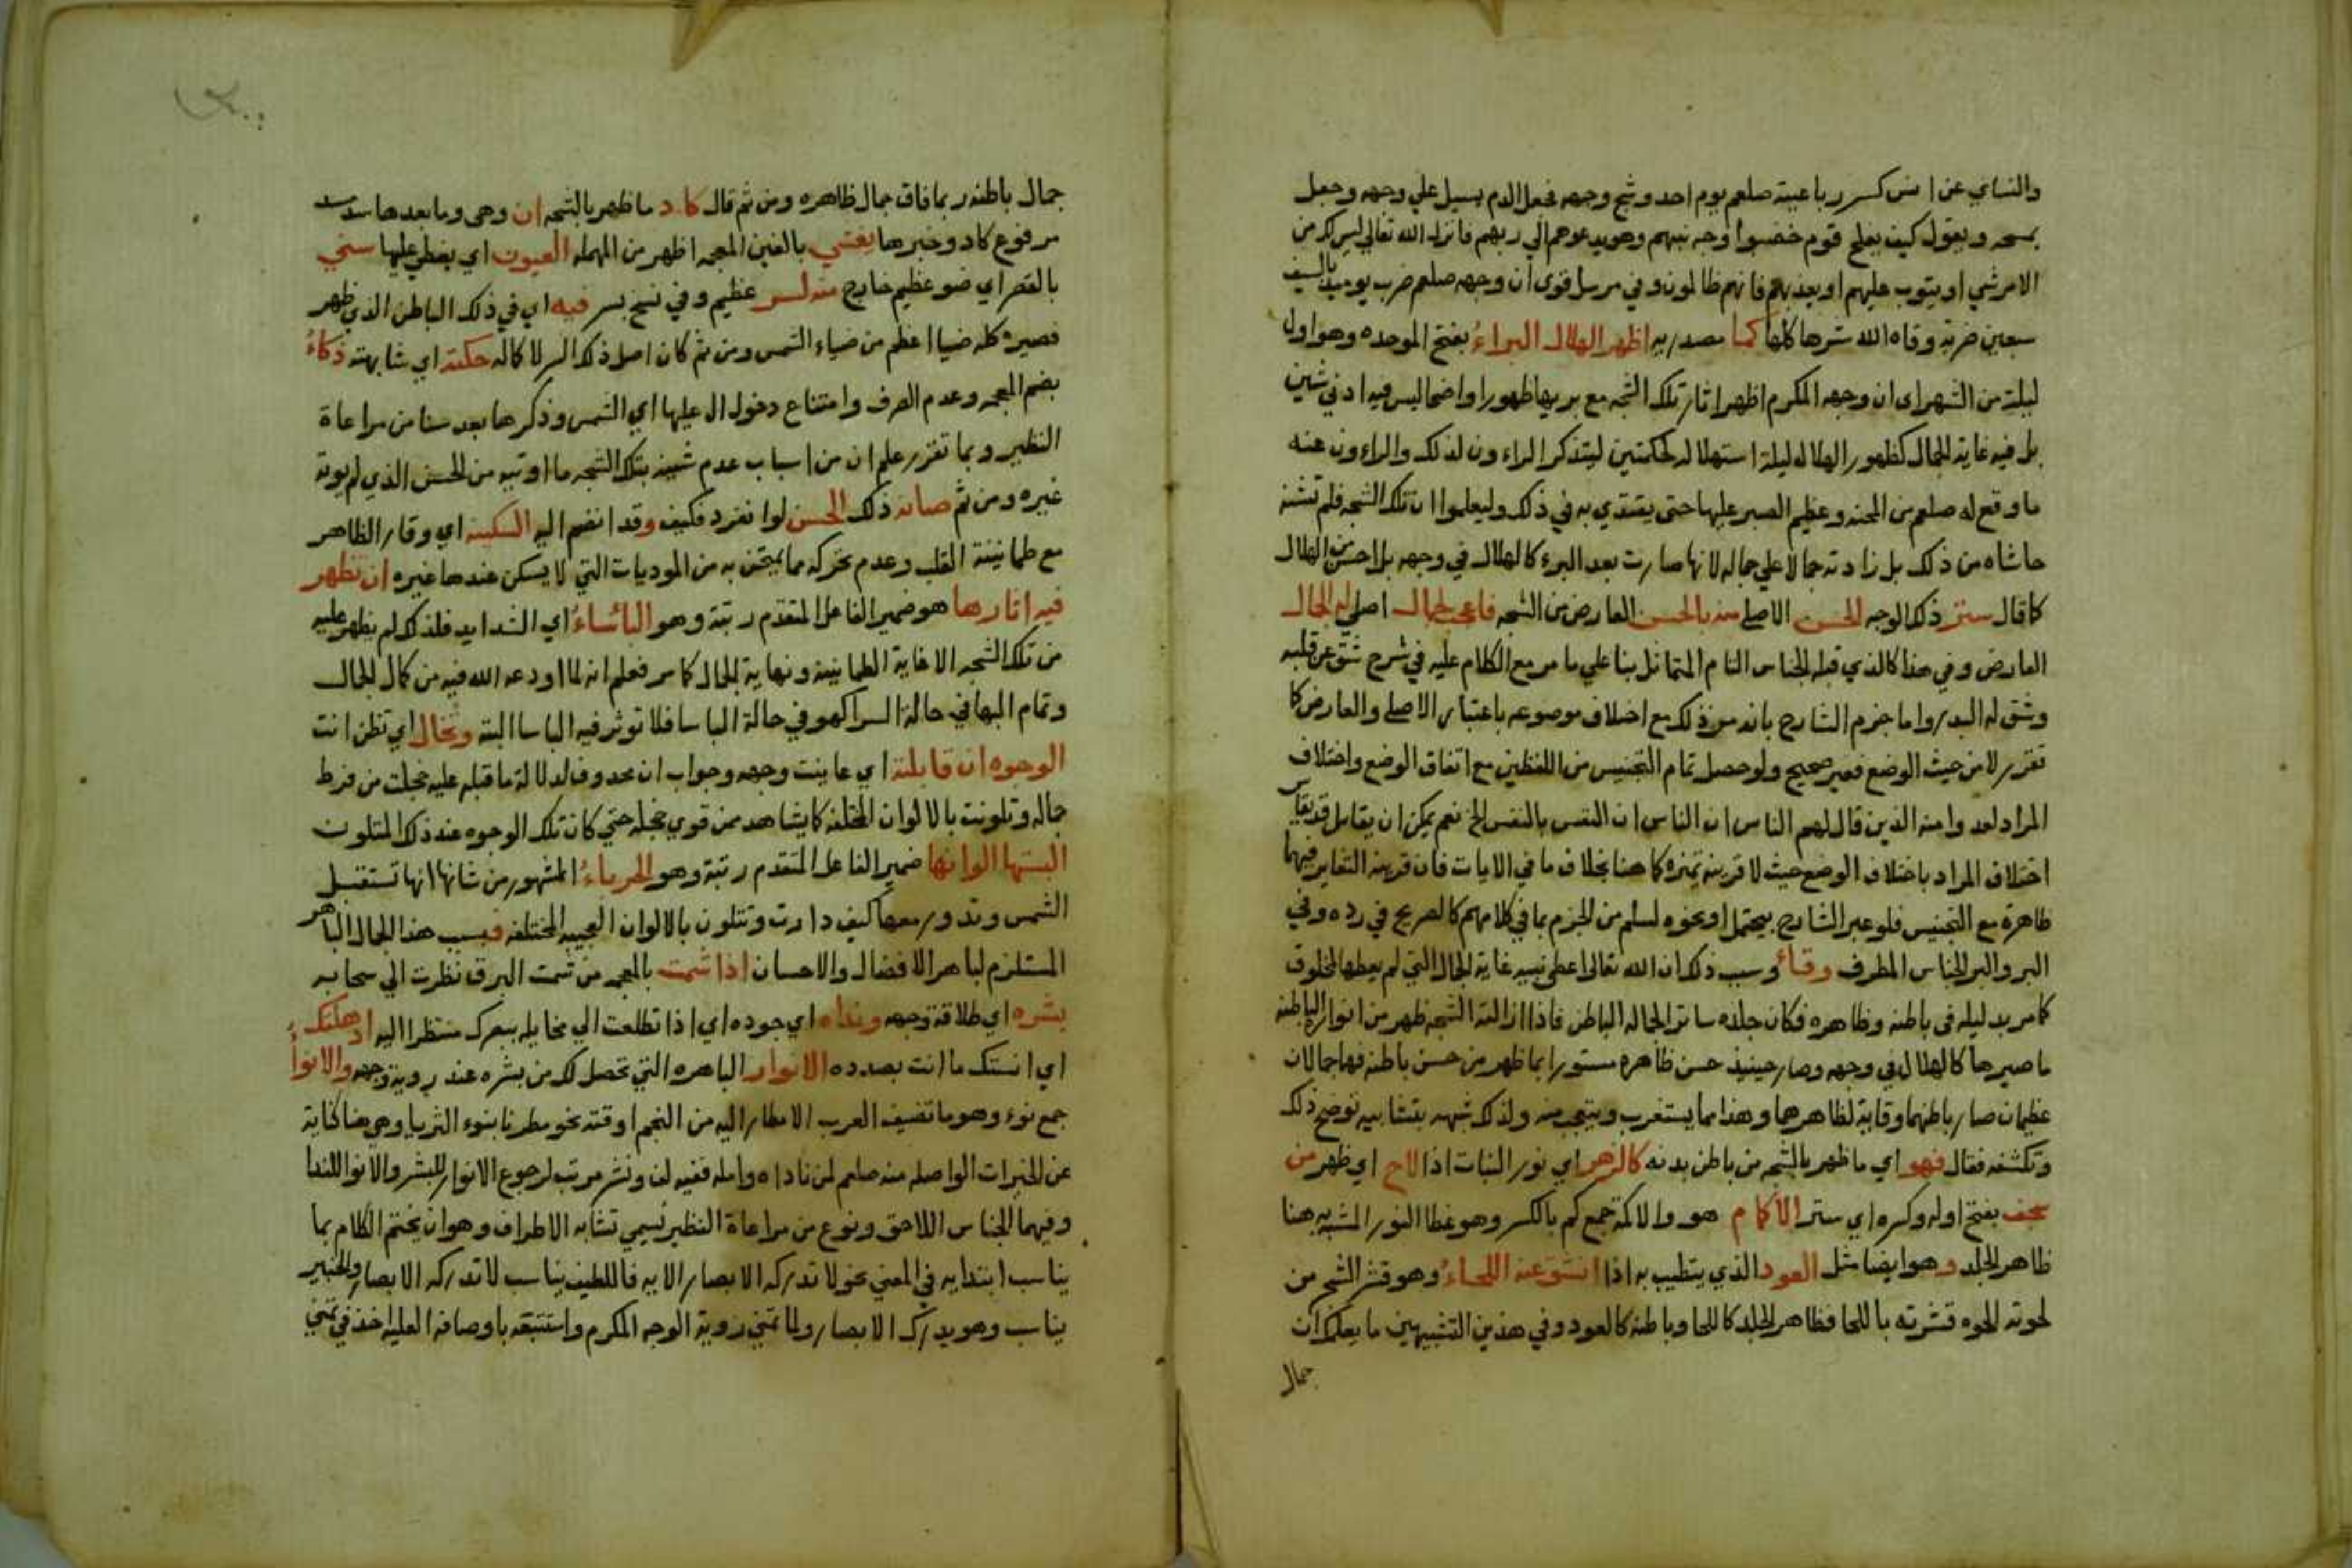 والنساي عن انس كسر رباعيته صلعم يوم احد وشج وجهه فجعل الدم يسيل علي وجهه وجعل
يمسحه ويقول كيف يفلح قوم خضبوا وجه نبيهم وهو يدعوهم الي ربهم فانزل الله تعالي ليس لك من
الامر شي او يتوب عليهم او يعذبهم فانهم ظالمون وفي مرسل قوي ان وجهه صلعم ضرب يوميذ بالسيف
سبعين ضربة وقاه الله شرها كلها كما مصدريه اظهر الهلال البراء بفتح الموحده وهو اول
ليلة من الشهر اي ان وجهه المكرم اظهر اثار تلك الشجه مع بريها ظهورا واضحا ليس فيه ادني شين
بل فيه غاية الجمال كظهور الهلال ليلة استهلاله لحكمتين ليتذكر الراءون لذلك والراءون عنه
ما وقع له صلعم من المحنه وعظيم الصبر عليها حتي يقتدي به في ذلك وليعلموا ان تلك الشجه فلم تشنه
حاشاه من ذلك بل زادته جمالا علي جماله لانها صارت بعد البرء كالهلال في وجهه بل احسن من الهلال
كما قال ستر ذلك الوجه الحسن الاصلي منه بالحسن العارض من الشجه فاعجب لجمال اصلي له الجمال
العارض وفي هذا كالذي قبله الجناس التام المتماثل بنا علي ما مر مع الكلام عليه في شرح شق عن قلبه
وشق له البدر واما جزم الشارح بانه من ذلك مع اختلاف موضوعه باعتبار الاصلي والعارض كما
تقرر لا من حيث الوضع فغير صحيح ولو حصل تمام التجنيس من اللفظين مع اتفاق الوضع واختلاف
المراد لعد وا منه الذين قال لهم الناس ان الناس ان النفس بالنفس الخ نعم يمكن ان يقابل قد يقاس
اختلاف المراد باختلاف الوضع حيث لا قرينة تميزه كما هنا بخلاف ما في الايات فان قرينة التغاير فيهما
ظاهرة مع التجنيس فلو عبر الشارح بيحتمل او نحوه لسلم من الجزم بما في كلامهم كالصريح في رده وفي
البر والبر الجناس المطرف وقاء وسبب ذلك ان الله تعالي اعطي نبيه غاية الجمال التي لم يعطها لمخلوق
كما مر بدليله في باطنه وظاهره فكان جلده ساتر الجماله الباطن فاذا ازالته الشجه ظهر من انواره الباطنه
ما صيرها كالهلال في وجهه وصار حينيذ حسن ظاهره مستورا بما ظهر من حسن باطنه فهما جمالان
عظيمان صار باطنهما وقاية لظاهرهما وهذا مما يستغرب ويتعجب منه ولذلك شبهه بتشابيه توضح ذلك
وتكشفه فقال فهو اي ما ظهر بالشجه من باطن بدنه كالزهر اي نور النبات اذا لاح اي ظهر من
سجف بفتح اوله وكسره اي ستر الاكمام هو والاكمة جمع كم بالكسر وهو غطا النور المشبه به هنا
ظاهر الجلد وهو ايضا مثل العود الذي يتطيب به اذا انشق عنه اللحاء وهو قشر الشجر من
لحوته الحوه قشرته باللحا فظاهر الجلد كاللحا وباطنه كالعود وفي هذين التشبيهين ما يعلمك ان
جمال
جمال باطنه ربما فاق جمال ظاهره ومن ثم قال كاد ما ظهر بالشجه ان وهي وما بعدها سد مسد
مرفوع كاد وخبرها يغشي بالغين المعجمه اظهر من المهمله العيون اي يغطي عليها سني
بالقصر اي ضوء عظيم خارج منه لسر عظيم وفي نسخ بسر فيه اي في ذلك الباطن الذي ظهر
فصيره كله ضيا اعظم من ضياء الشمس ومن ثم كان اصل ذلك السر لا كماله حكته اي شابهته ذكاء
بضم المعجمه وعدم الصرف وامتناع دخول ال عليها اي الشمس وذكرها بعد سنا من مراعاة
النظير وبما تقرر علم ان من اسباب عدم شينه بتلك الشجه ما اوتيه من الحسن الذي لم يوته
غيره ومن ثم صانه ذلك الحسن لو انفرد فكيف وقد انضم اليه السكينة اي وقار الظاهر
مع طمانينة القلب وعدم تحركه مما يمتحن به من الموديات التي لا يسكن عندها غيره ان تظهر
فيه اثارها هو ضمير الفاعل المتقدم رتبة وهو الباساء اي الشدايد فلذلك لم يظهر عليه
من تلك الشجه الا غاية الطمانينة ونهاية الجمال كما مر فعلم انه لما اودعه الله فيه من كمال الجمال
وتمام البها في حالة السرا كهو في حالة الباسا فلا توثر فيه الباسا البتة وتخال اي تظن انت
الوجوه ان قابلته اي عاينت وجهه وجواب ان محذوف لدلالة ما قبله عليه خجلت من فرط
جماله وتلونت بالالوان المختلفه كما يشاهد ممن قوي خجله حتي كان تلك الوجوه عند ذلك المتلون
البستها الوانها ضمير الفاعل المتقدم رتبة وهو الحرباء المشهور من شانها انها تستقبل
الشمس وتدور معها كيف دارت وتتلون بالالوان العجيبه المختلفه فبسبب هذا الجمال الباهر
المستلزم لباهر الافضال والاحسان اذا شمت بالمعجمه من شمت البرق نظرت الي سحابه
بشره اي طلاقة وجهه ونداه اي جوده اي اذا تطلعت الي مخايله ببصرك منتظرا اليه اذهلتك
اي انستك ما انت بصدده الانوار الباهره التي تحصل لك من بشره عند روية وجهه والانواء
جمع نوء وهو ما تضيف العرب الامطار اليه من النجم او قته نحو مطرنا بنوء الثريا وهي هنا كناية
عن الخيرات الواصله منه صلعم لمن ناداه وامله ففيه لف ونشر مرتب لرجوع الانوار للبشر والانوا للندا
وفيهما الجناس اللاحق ونوع من مراعاة النظير يسمي تشابه الاطراف وهو ان يختم الكلام بما
يناسب ابتدايه في المعني نحو لا تدركه الابصار الايه فاللطيف يناسب لا تدركه الابصار والخبير
يناسب وهو يدرك الابصار ولما تمني روية الوجه المكرم واستتبعه باوصافه العليه اخذ في تمني